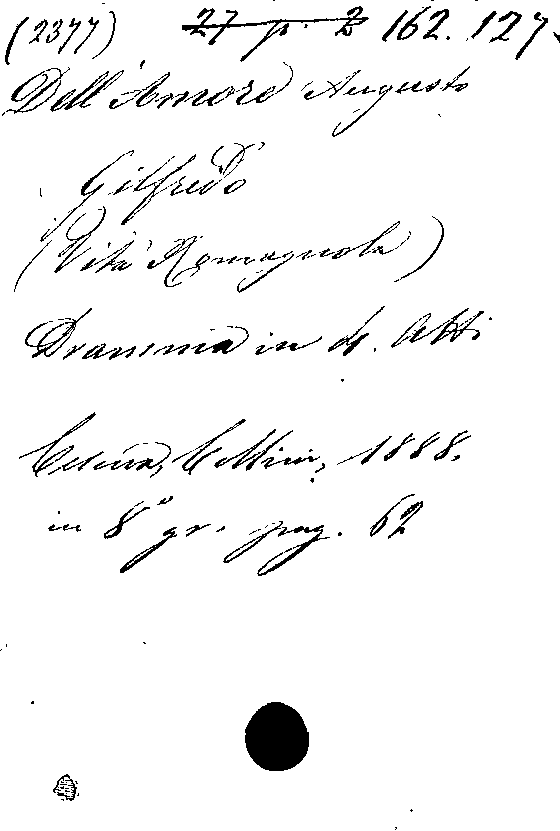 (2377) 27 p. 2 162. 127.
Dell'Amore Augusto
Gilfredo
(Vita Romagnola)
Dramma in 4. Atti
Cesena, Collini, 1888.
in 8° gr. pag. 62